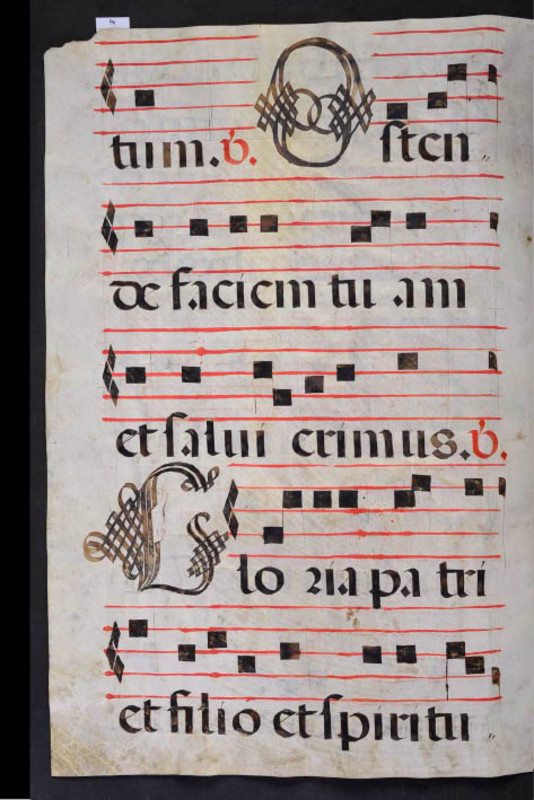 tum. ꝟ. Osten〃
de faciem tu am
et salui erimus. ꝟ.
Glo ria pa tri
et filio et spiritu〃